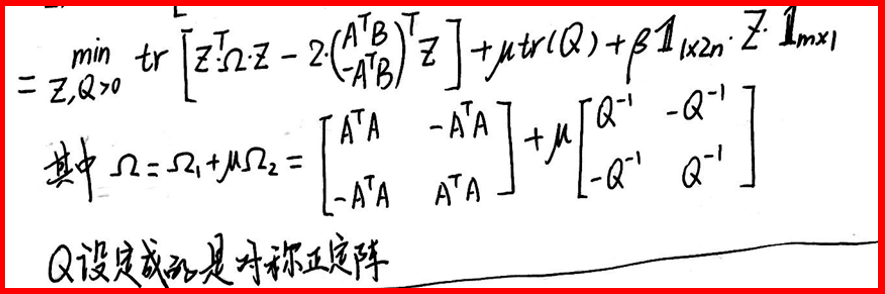 = min_{Z,Q>0} tr [ Z^T·Ω·Z − 2·(A^T B; −A^T B)^T Z ] + μ tr(Q) + β 1_{1×2n} · Z · 1_{m×1}
其中 Ω = Ω_1 + μΩ_2 = [ A^T A  −A^T A; −A^T A  A^T A ] + μ [ Q^{-1}  −Q^{-1}; −Q^{-1}  Q^{-1} ]
Q设定成的是对称正定阵